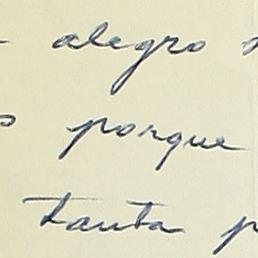 alegro
porque
tanta p